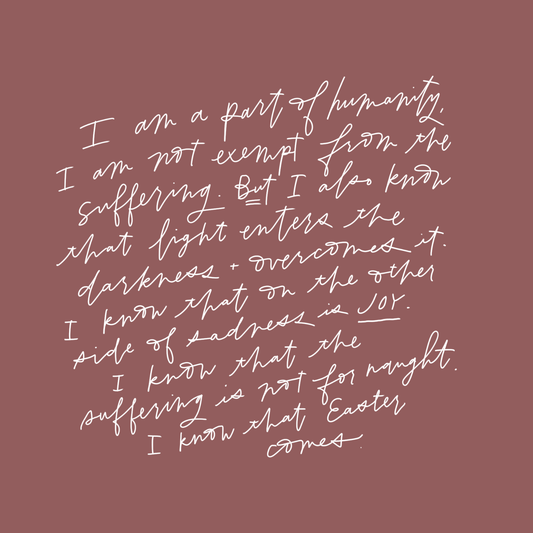 I am a part of humanity,
I am not exempt from the
suffering. But I also know
that light enters the
darkness + overcomes it.
I know that on the other
side of sadness is JOY.
I know that the
suffering is not for naught.
I know that Easter
comes.